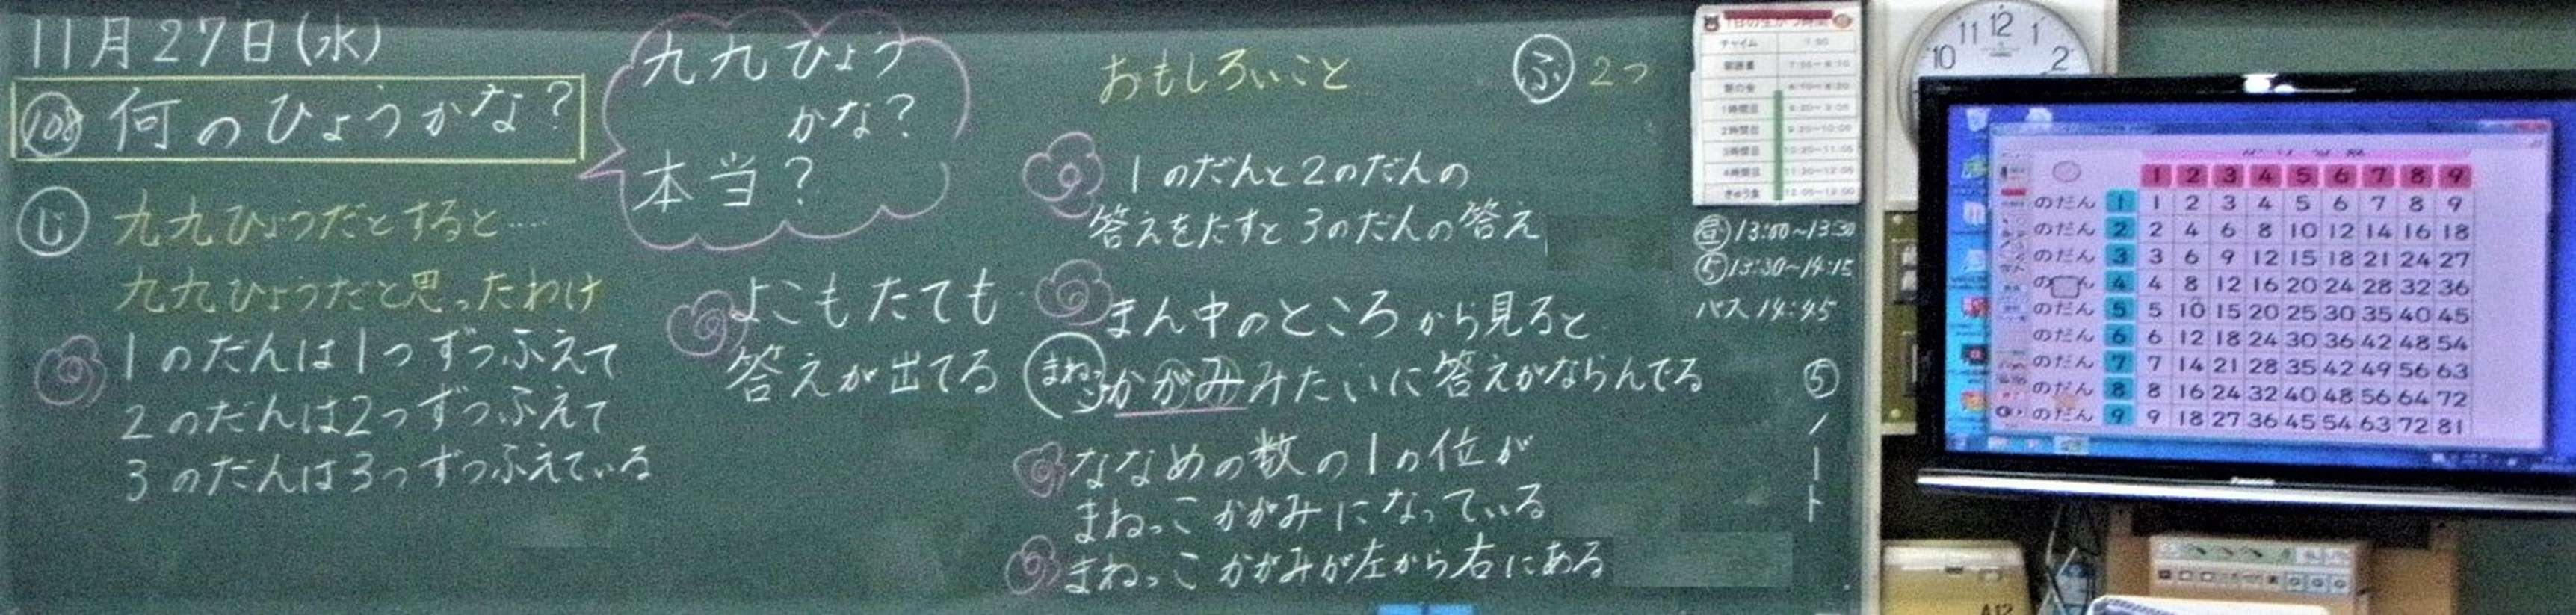 11月27日(水)
108 何のひょうかな?
九九ひょう
かな?
本当?
じ 九九ひょうだとすると‥‥
九九ひょうだと思ったわけ
1のだんは1つずつふえて
2のだんは2つずつふえて
3のだんは3つずつふえている
よこもたても
答えが出てる
おもしろいこと
ふ 2つ
1のだんと2のだんの
答えをたすと3のだんの答え
まん中のところから見ると
まねっこ かがみみたいに答えがならんでる
ななめの数の1の位が
まねっこかがみになっている
まねっこかがみが左から右にある
チャイム 7:50
朝の会 8:10~8:20
1時間目 8:20~9:05
2時間目 9:20~10:05
3時間目 10:20~11:05
4時間目 11:20~12:05
きゅう食 12:05~13:00
昼 13:00~13:30
5 13:30~14:15
バス 14:45
5
ノート
10 11 12 1 2
1 2 3 4 5 6 7 8 9
のだん 1 1 2 3 4 5 6 7 8 9
のだん 2 2 4 6 8 10 12 14 16 18
のだん 3 3 6 9 12 15 18 21 24 27
のだん 4 4 8 12 16 20 24 28 32 36
のだん 5 5 10 15 20 25 30 35 40 45
のだん 6 6 12 18 24 30 36 42 48 54
のだん 7 7 14 21 28 35 42 49 56 63
のだん 8 8 16 24 32 40 48 56 64 72
のだん 9 9 18 27 36 45 54 63 72 81
Panasonic
A12